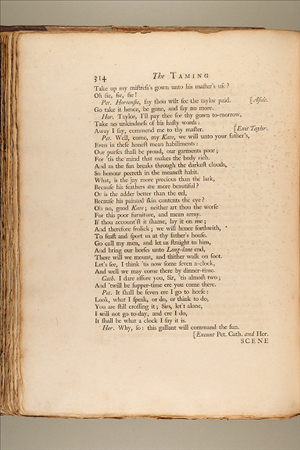 314 The TAMING
Take up my miſtreſs's gown unto his maſter's uſe?
Oh fie, fie, fie!
Pet. Hortenſio, ſay thou wilt ſee the taylor paid. [Aſide.
Go take it hence, be gone, and ſay no more.
Hor. Taylor, I'll pay thee for thy gown to-morrow,
Take no unkindneſs of his haſty words:
Away I ſay, commend me to thy maſter. [Exit Taylor.
Pet. Well, come, my Kate, we will unto your father's,
Even in theſe honeſt mean habiliments:
Our purſes ſhall be proud, our garments poor;
For 'tis the mind that makes the body rich.
And as the ſun breaks through the darkeſt clouds,
So honour peereth in the meaneſt habit.
What, is the jay more precious than the lark,
Becauſe his feathers are more beautiful?
Or is the adder better than the eel,
Becauſe his painted ſkin contents the eye?
Oh no, good Kate; neither art thou the worſe
For this poor furniture, and mean array.
If thou account'ſt it ſhame, lay it on me;
And therefore frolick; we will hence forthwith,
To feaſt and ſport us at thy father's houſe.
Go call my men, and let us ſtraight to him,
And bring our horſes unto Long-lane end,
There will we mount, and thither walk on foot.
Let's ſee, I think 'tis now ſome ſeven a-clock,
And well we may come there by dinner-time.
Cath. I dare aſſure you, Sir, 'tis almoſt two;
And 'twill be ſupper-time ere you come there.
Pet. It ſhall be ſeven ere I go to horſe:
Look, what I ſpeak, or do, or think to do,
You are ſtill croſſing it; Sirs, let't alone,
I will not go to-day, and ere I do,
It ſhall be what a clock I ſay it is.
Hor. Why, ſo: this gallant will command the ſun.
[Exeunt Pet. Cath. and Hor.
SCENE